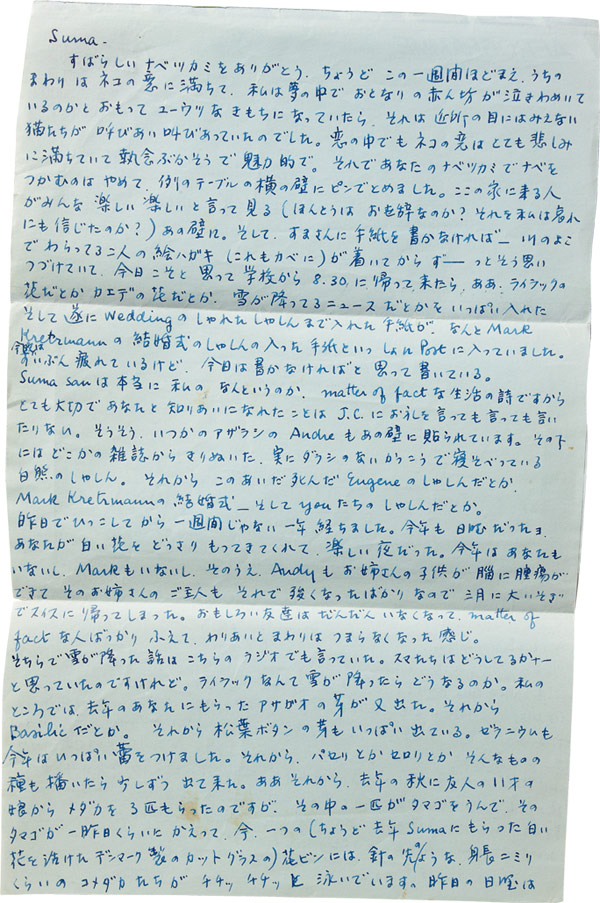 Suma-
すばらしい ナベツカミをありがとう、ちょうど この一週間ほどまえ、うちの
まわりは ネコの恋に満ちて、私は夢の中で おとなりの赤ん坊が泣きわめいて
いるのかと おもって ユーウツな きもちになっていたら、それは近所の目にはみえない
猫たちが 呼びあい叫びあっていたのでした。恋の中でも ネコの恋はとても悲しみ
に満ちていて 執念ぶかそうで魅力的で。それであなたのナベツカミでナベを
つかむのは やめて、例のテーブルの横の壁にピンでとめました。ここの家に来る人
がみんな 楽しい 楽しいと言って見る(ほんとうは お世辞なのか? それを私は愚か
にも信じたのか?) あの壁に。そして、すまさんに手紙を書かなければ― 川のよこ
でわらってる二人の絵ハガキ(これもカベに)が着いてから ず――っとそう思い
つづけていて、今日こそと思って学校から 8.30.に帰って来たら、ああ、ライラックの
花だとか カエデの花だとか、雪が降ってるニュースだとかを いっぱい入れた
そして遂に Weddingのしゃれたしゃしんまで入れた手紙が、なんとMark
Kretzmannの結婚式のしゃしんの入った手紙といっしょにPostに入っていました。
今晩は
ずいぶん疲れているけど、今日は書かなければと思って書いている。
Suma sanは本当に 私の、なんというのか、matter of factな生活の詩ですから
とても大切で あなたと知りあいになれたことは J.C.にお礼を言っても言っても言い
たりない。そうそう、いつかのアザラシの Andreもあの壁に貼られています。その下
にはどこかの雑誌からきりぬいた、実にダラシのないかっこうで寝そべっている
白熊のしゃしん。それから このあいだ死んだ Eugeneのしゃしんだとか、
Mark Kretzmannの結婚式― そして youたちのしゃしんだとか。
昨日でひっこしてから一週間じゃない一年経ちました。今年も日曜だったョ、
あなたが白い花をどっさりもってきてくれて、楽しい夜だった。今年はあなたも
いないし、Markもいないし、そのうえ、Andyもお姉さんの子供が脳に腫瘍が
できて そのお姉さんのご主人も それで 弱くなったばかりなので 三月に大いそぎ
でスイスに帰ってしまった。おもしろい友達はだんだんいなくなって、matter of
factな人ばっかり ふえて、わりあいとまわりは つまらなくなった感じ。
そちらで雪が降った話は こちらのラジオでも言っていた。スマたちはどうしてるかナー
と思っていたのですけれど。ライラックなんて雪が降ったらどうなるのか。私の
ところでは、去年のあなたにもらったアサガオの芽が又出た。それから
Basilicだとか。それから松葉ボタンの芽もいっぱい出ている。ゼラニウムも
今年はいっぱい蕾をつけました。それから、パセリとかセロリとか そんなもの の
種も播いたら少しずつ出て来た。ああそれから、去年の秋に友人の11才の
娘から メダカを3匹もらったのですが、その中の一匹がタマゴをうんで、その
タマゴが一昨日くらいにかえって、今、一つの(ちょうど去年Sumaにもらった白い
花を活けた デンマーク製のカットグラスの)花ビンには、針の先のような、身長二ミリ
くらいのコメダカたちが チチッ チチッと 泳いでいます。昨日の日曜は